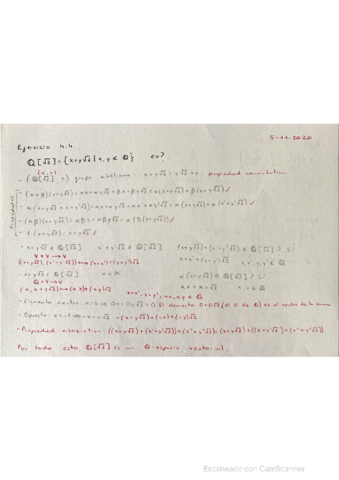 5-11-2020
Ejercicio 4.4.
Q[√2] = {x+y√2 | x, y ∈ Q} ev?
(V, +)
- (Q[√2], +) grupo abeliano: x+y√2 = y√2+x propiedad conmutativa
Propiedades
- (α+β)(x+y√2) = αx+αy√2+βx+βy√2 = α(x+y√2)+β(x+y√2) ✓
- (αβ)(x+y√2) = αβx+αβy√2 = α(β(x+y√2)) ✓
- 1·(x+y√2) = x+y√2 ✓
- x+y√2 ∈ Q[√2] x'+y'√2 ∈ Q[√2] (x+y√2)+(x'+y'√2) ∈ Q[√2]? Sí
V×V → V
- x+y√2 ∈ Q[√2] α(x+y√2) ∈ Q[√2]? Sí
Q×V → V
- Elemento neutro: 0+0√2
- Opuesto: -(x+y√2) = (-x)+(-y)√2
- Propiedad asociativa: ((x+y√2)+(x'+y'√2))+(x''+y''√2) = (x+y√2)+((x'+y'√2)+(x''+y''√2))
Por todo esto, Q[√2] es un Q-espacio vectorial.
Escaneado con CamScanner